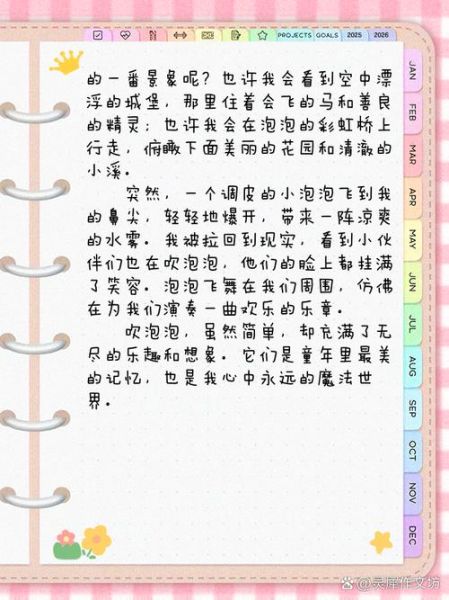 PROJECTS GOALS 2025 2026
的一番景象呢？也许我会看到空中漂
浮的城堡，那里住着会飞的马和善良
的精灵；也许我会在泡泡的彩虹桥上
行走，俯瞰下面美丽的花园和清澈的
小溪。
突然，一个调皮的小泡泡飞到我
的鼻尖，轻轻地爆开，带来一阵凉爽
的水雾。我被拉回到现实，看到小伙
伴们也在吹泡泡，他们的脸上都挂满
了笑容。泡泡飞舞在我们周围，仿佛
在为我们演奏一曲欢乐的乐章。
吹泡泡，虽然简单，却充满了无
尽的乐趣和想象。它们是童年里最美
的记忆，也是我心中永远的魔法世
界。
JAN
FEB
MAR
APR
MAY
JUN
JUL
AUG
SEP
OCT
NOV
DEC
@灵犀作文坊